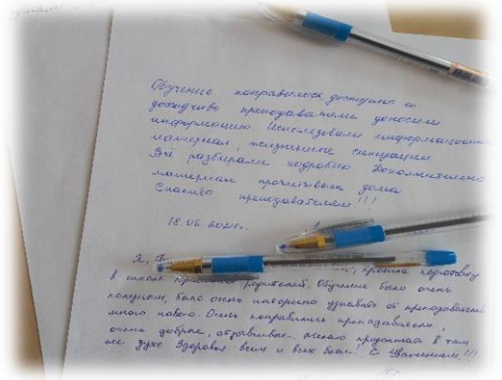 Обучение понравилось, доступно и
доходчиво преподаватели доносили
информацию Использовали информацион
материал, жизненные ситуации
Всё разбирали подробно. Дополнительно
материал прочитывала дома
Спасибо преподавателям!!!
18.06.
Я, прошла подготовку
в школе родителей. Обучение было очень
полезным, было очень интересно узнавать от преподавателей
много нового. Очень понравились преподаватели,
очень добрые, отзывчивые. Желаю продолжать в том
же духе Здоровья всем и всех благ! С Уважением!!!